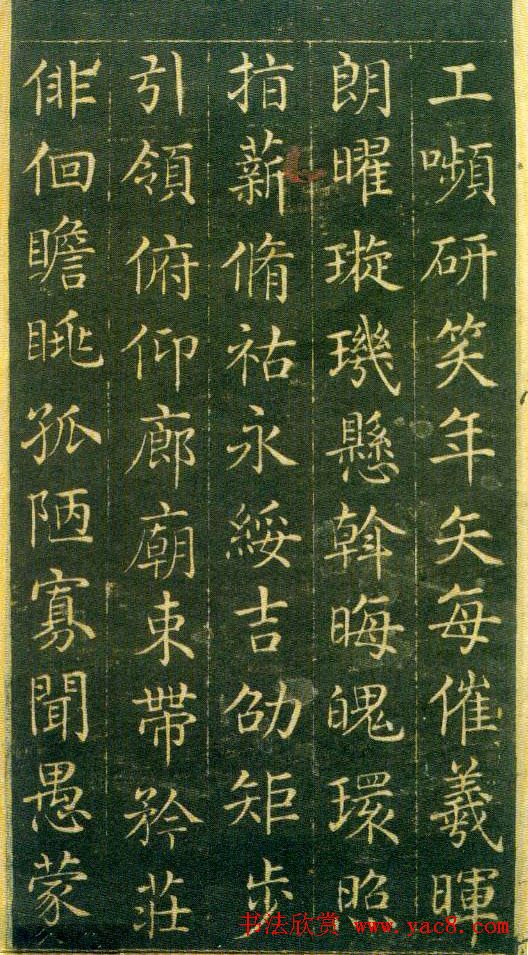 工嚬研笑年矢每催羲暉
朗曜璇璣懸斡晦魄環照
指薪脩祜永綏吉劭矩步
引領俯仰廊廟束帶矜莊
俳徊瞻眺孤陋寡聞愚蒙
书法欣赏 www.yac8.com